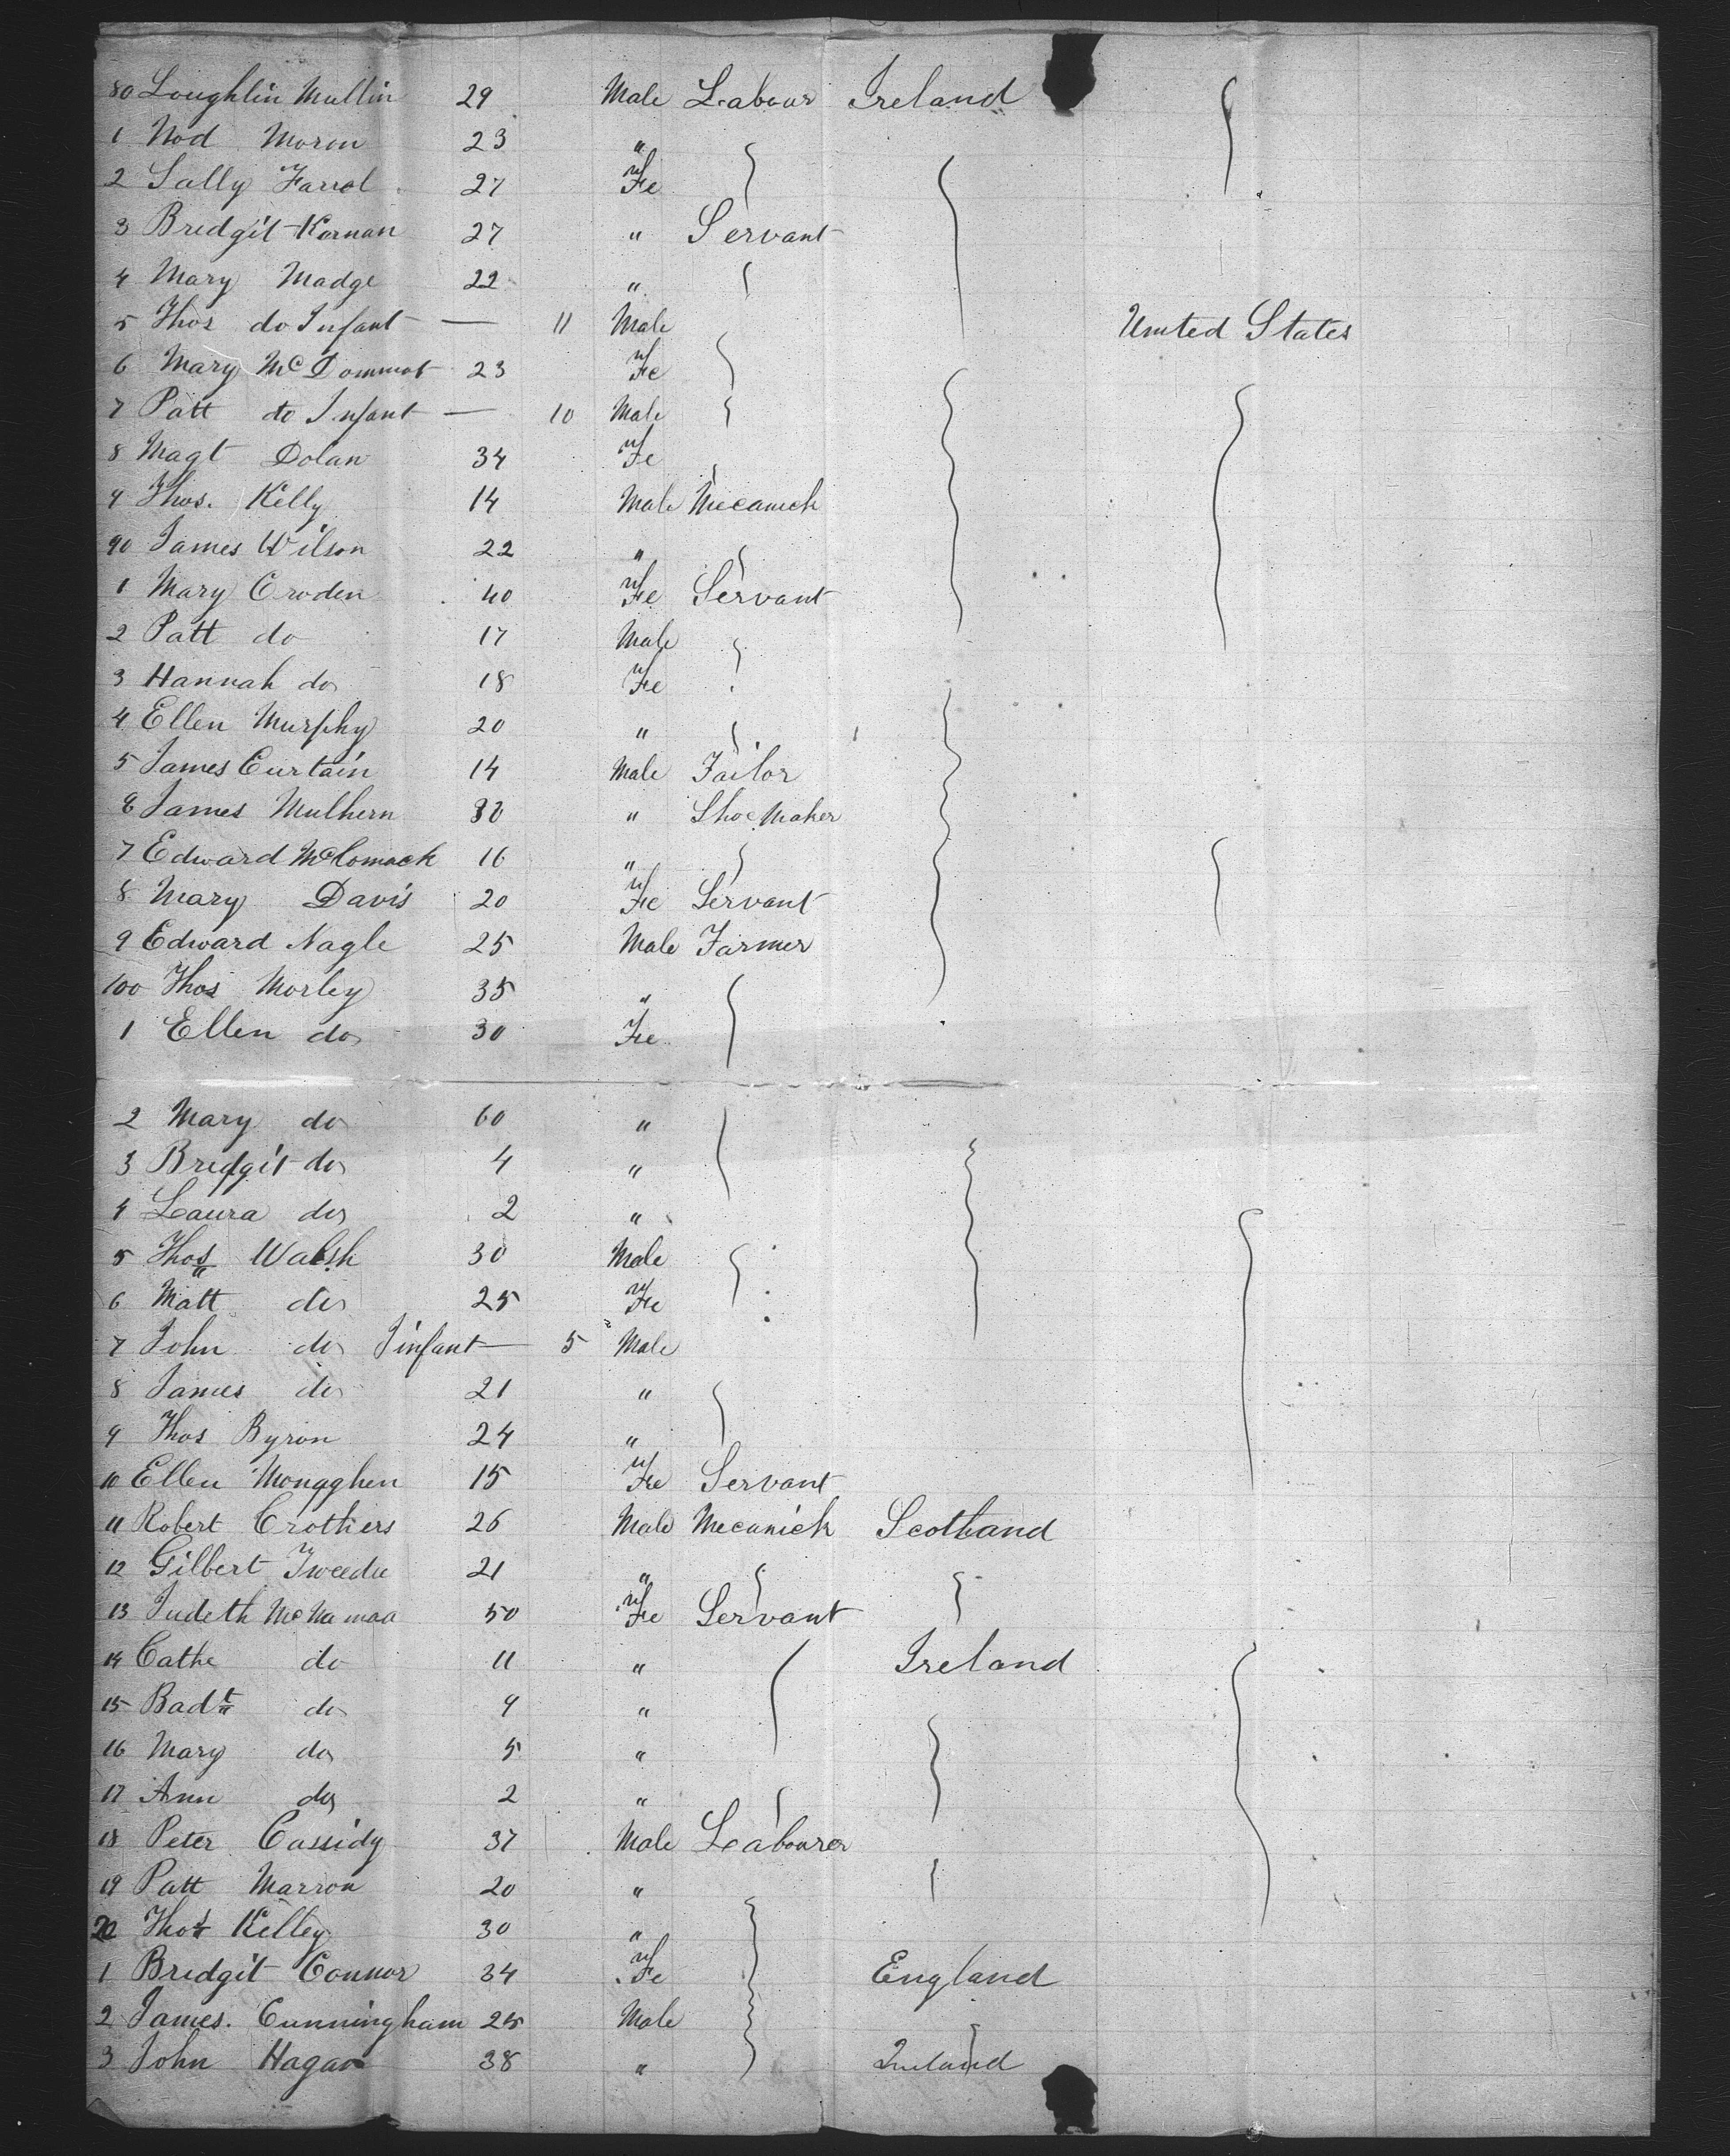 80 Loughlin Mullin 29 Male Labour Ireland
1 Nod Moron 23 "
2 Sally Farrol 27 Fe
3 Bredgit Kornan 27 " Servant
4 Mary Madge 22 "
5 Thos do Infant — 11 Male United States
6 Mary McDommot 23 Fe
7 Patt do Infant — 10 Male
8 Magt Dolan 34 Fe
9 Thos. Kelly 14 Male Mecanick
90 James Wilson 22 "
1 Mary Croden 40 Fe Servant
2 Patt do 17 Male
3 Hannah do 18 Fe
4 Ellen Murphy 20 "
5 James Curtain 14 Male Tailor
6 James Mulhern 30 " Shoe Maker
7 Edward McComack 16 "
8 Mary Davis 20 Fe Servant
9 Edward Nagle 25 Male Farmer
100 Thos Morley 35 "
1 Ellen do 30 Fe
2 Mary do 60 "
3 Bredgit do 4 "
4 Laura do 2 "
5 Thos Walsh 30 Male
6 Matt do 25 Fe
7 John do Iinfant — 5 Male
8 James do 21 "
9 Thos Byron 24 "
10 Ellen Mongghen 15 Fe Servant
11 Robert Crothers 26 Male Mecanick Scotland
12 Gilbert Tweedie 21 "
13 Judeth McNamaa 50 Fe Servant
14 Cathe do 11 " Ireland
15 Badt do 9 "
16 Mary do 5 "
17 Ann do 2 "
18 Peter Cassidy 37 Male Labourer
19 Patt Marron 20 "
20 Thos Kelley 30 "
1 Bredgit Connor 34 Fe England
2 James. Cunningham 25 Male
3 John Hagan 38 " Ireland